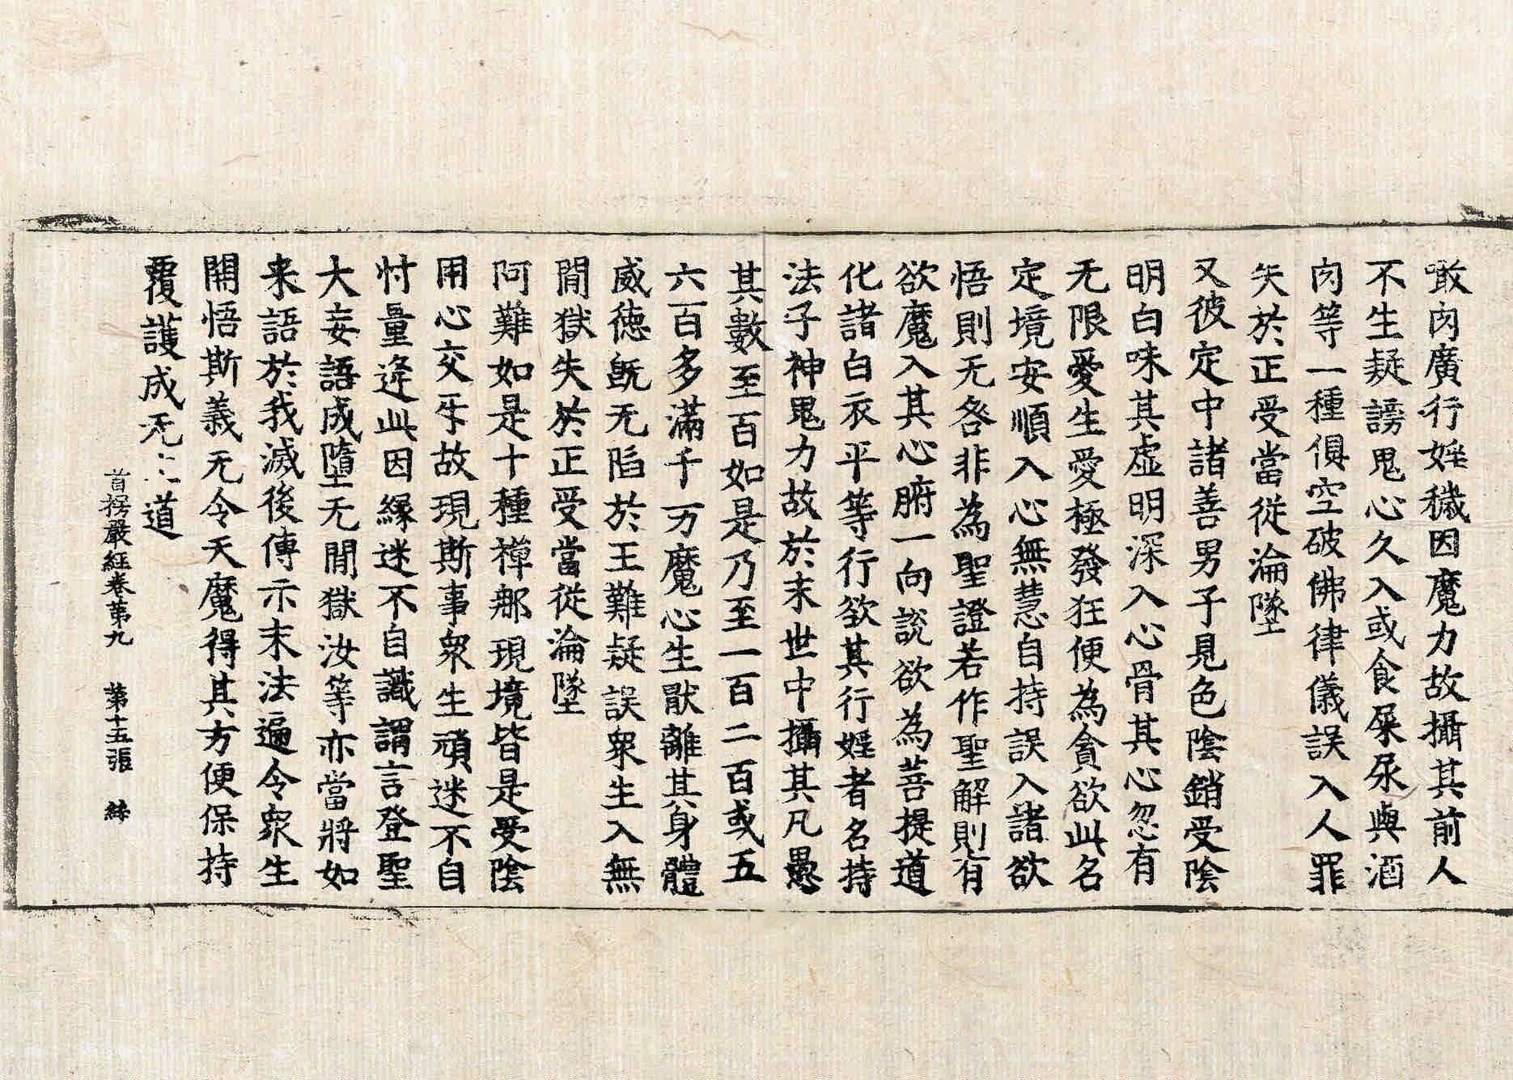 噉肉廣行婬穢因魔力故攝其前人
不生疑謗鬼心久入或食屎尿與酒
肉等一種俱空破佛律儀誤入人罪
矢於正受當從淪墜
又彼定中諸善男子見色陰銷受陰
明白味其虛明深入心骨其心忽有
无限愛生愛極發狂便為貪欲此名
定境安順入心無慧自持誤入諸欲
悟則无咎非為聖證若作聖解則有
欲魔入其心腑一向說欲為菩提道
化諸白衣平等行欲其行婬者名持
法子神鬼力故於末世中攝其凡愚
其數至百如是乃至一百二百或五
六百多滿千万魔心生厭離其身體
威徳旣无陷於王難疑誤衆生入無
間獄失於正受當從淪墜
阿難如是十種禪那現境皆是受陰
用心交㸦故現斯事衆生頑迷不自
忖量逢此因緣迷不自識謂言登聖
大妄語成墮无間獄汝等亦當將如
来語於我滅後傳示末法遍令衆生
開悟斯義无令天魔得其方便保持
覆護成无上道
首楞嚴經卷苐九 苐十五張 絲